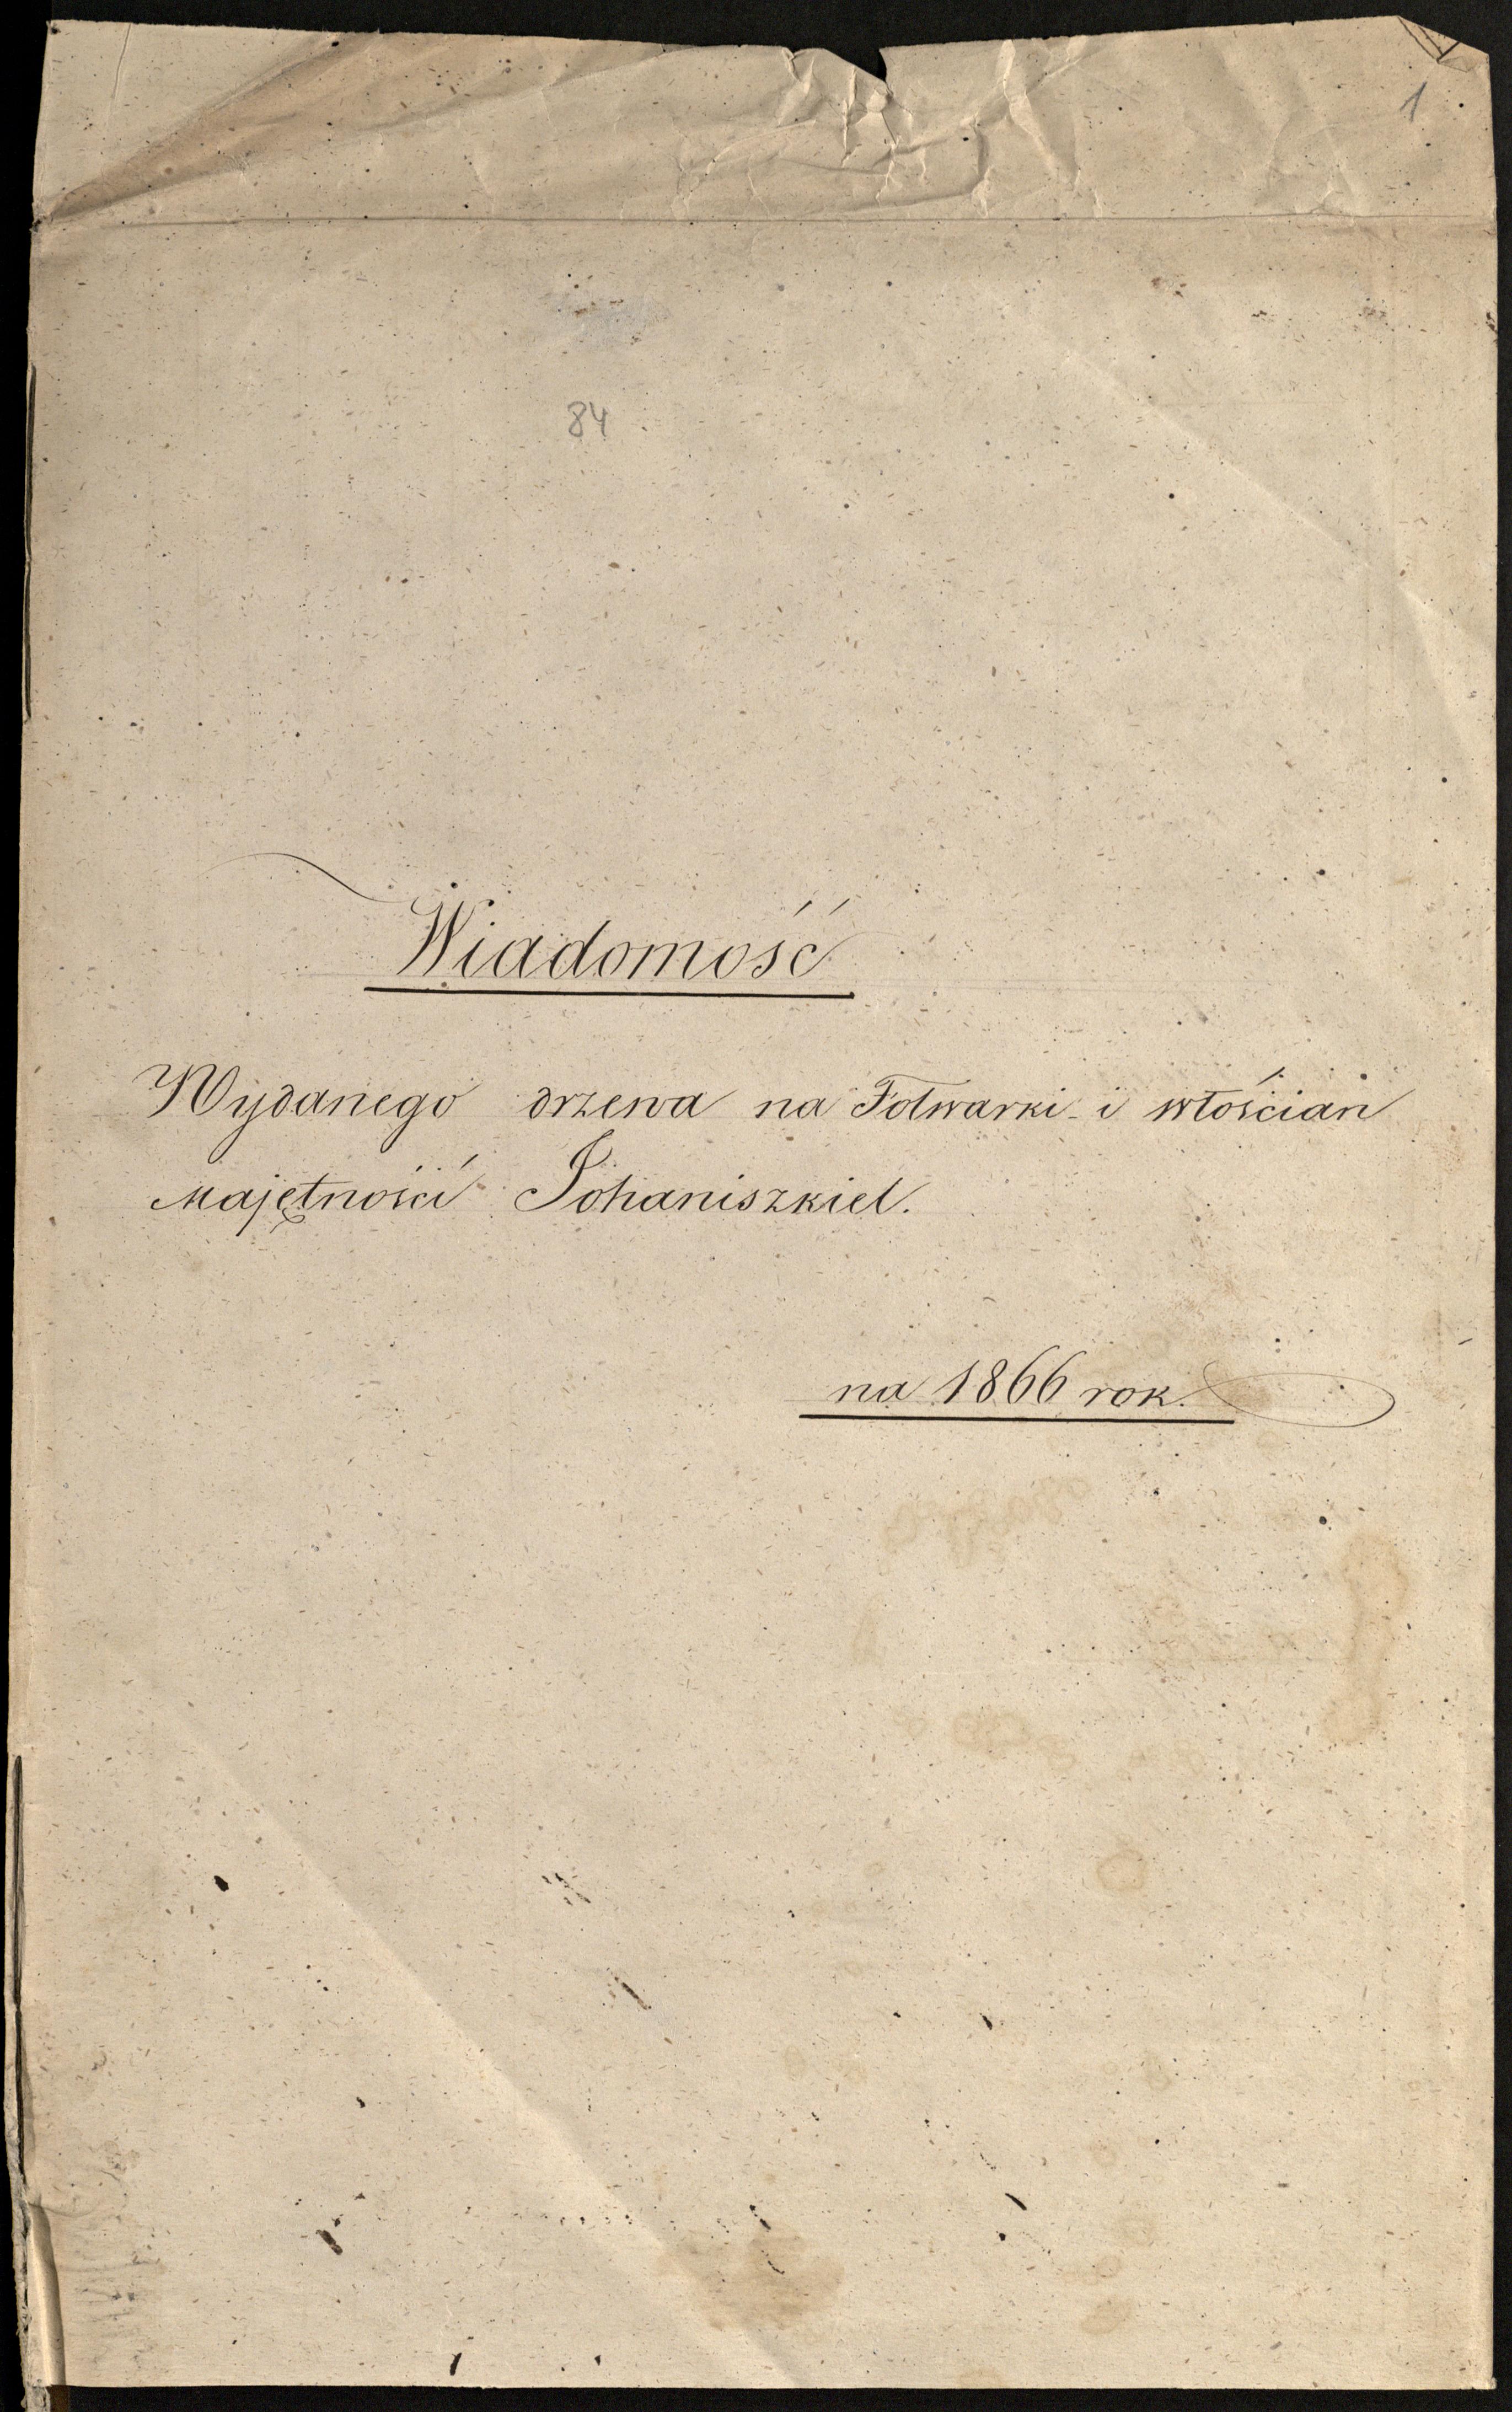 1
84
Wiadomość
Wydanego drzewa na Folwarki i włościan
Majętności Johaniszkiel.
na 1866 rok.